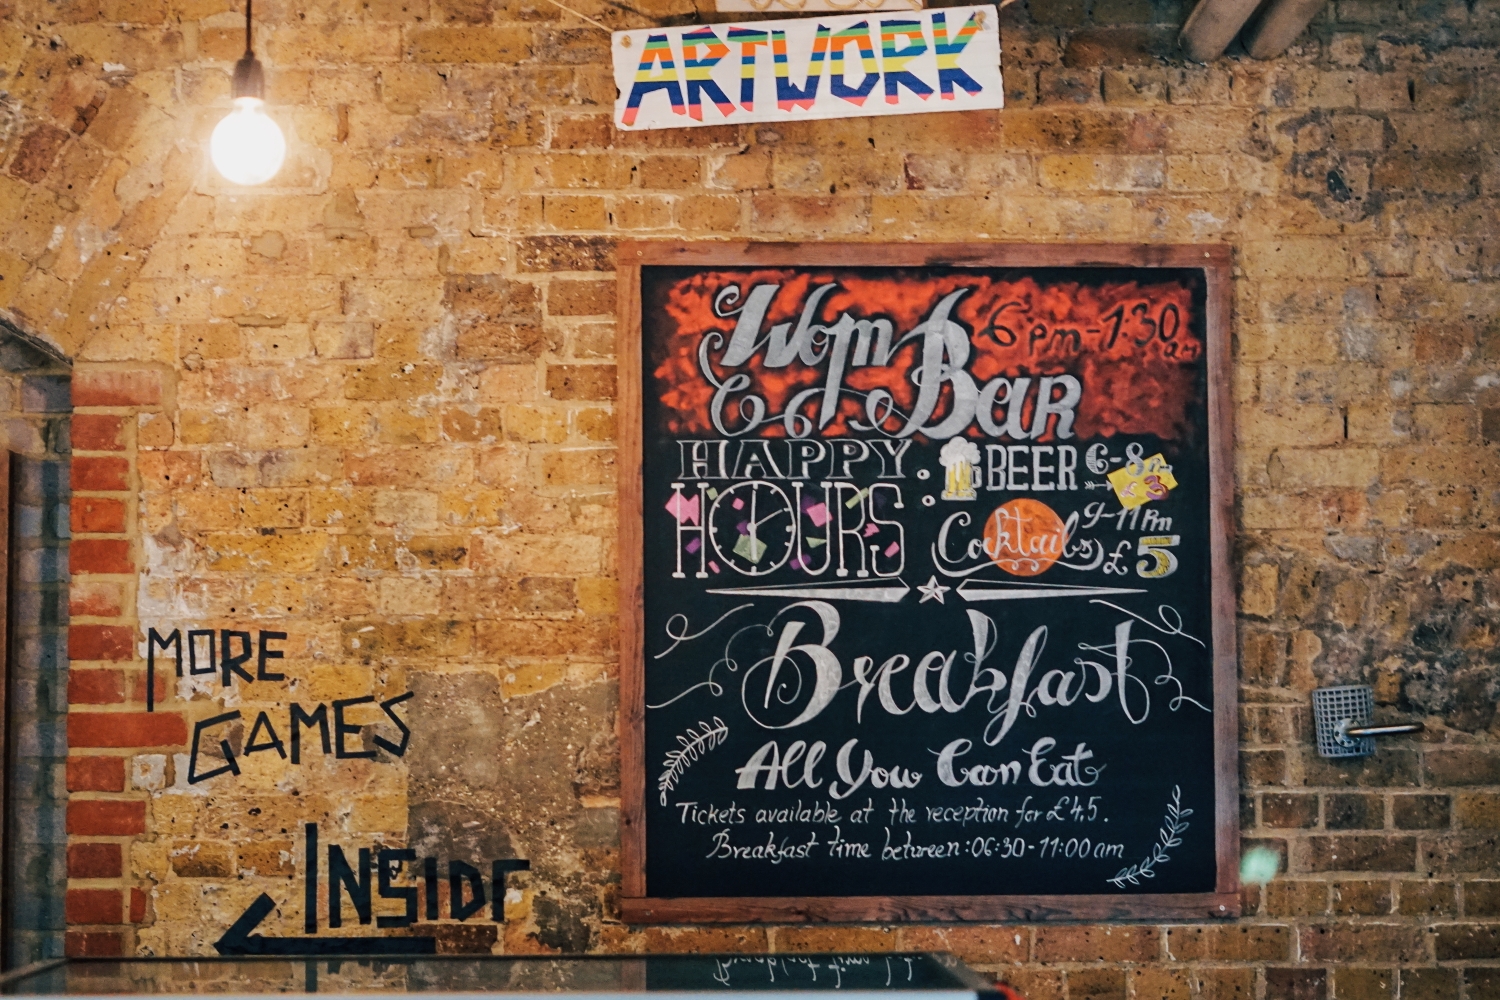 ARTWORK
Wom Bar 6pm-1:30 am
HAPPY HOURS:
BEER 6-8pm £3
Cocktails 9-11pm £5
Breakfast
All You Can Eat
Tickets available at the reception for £4,5.
Breakfast time between:06:30-11:00am
MORE
GAMES
INSIDE